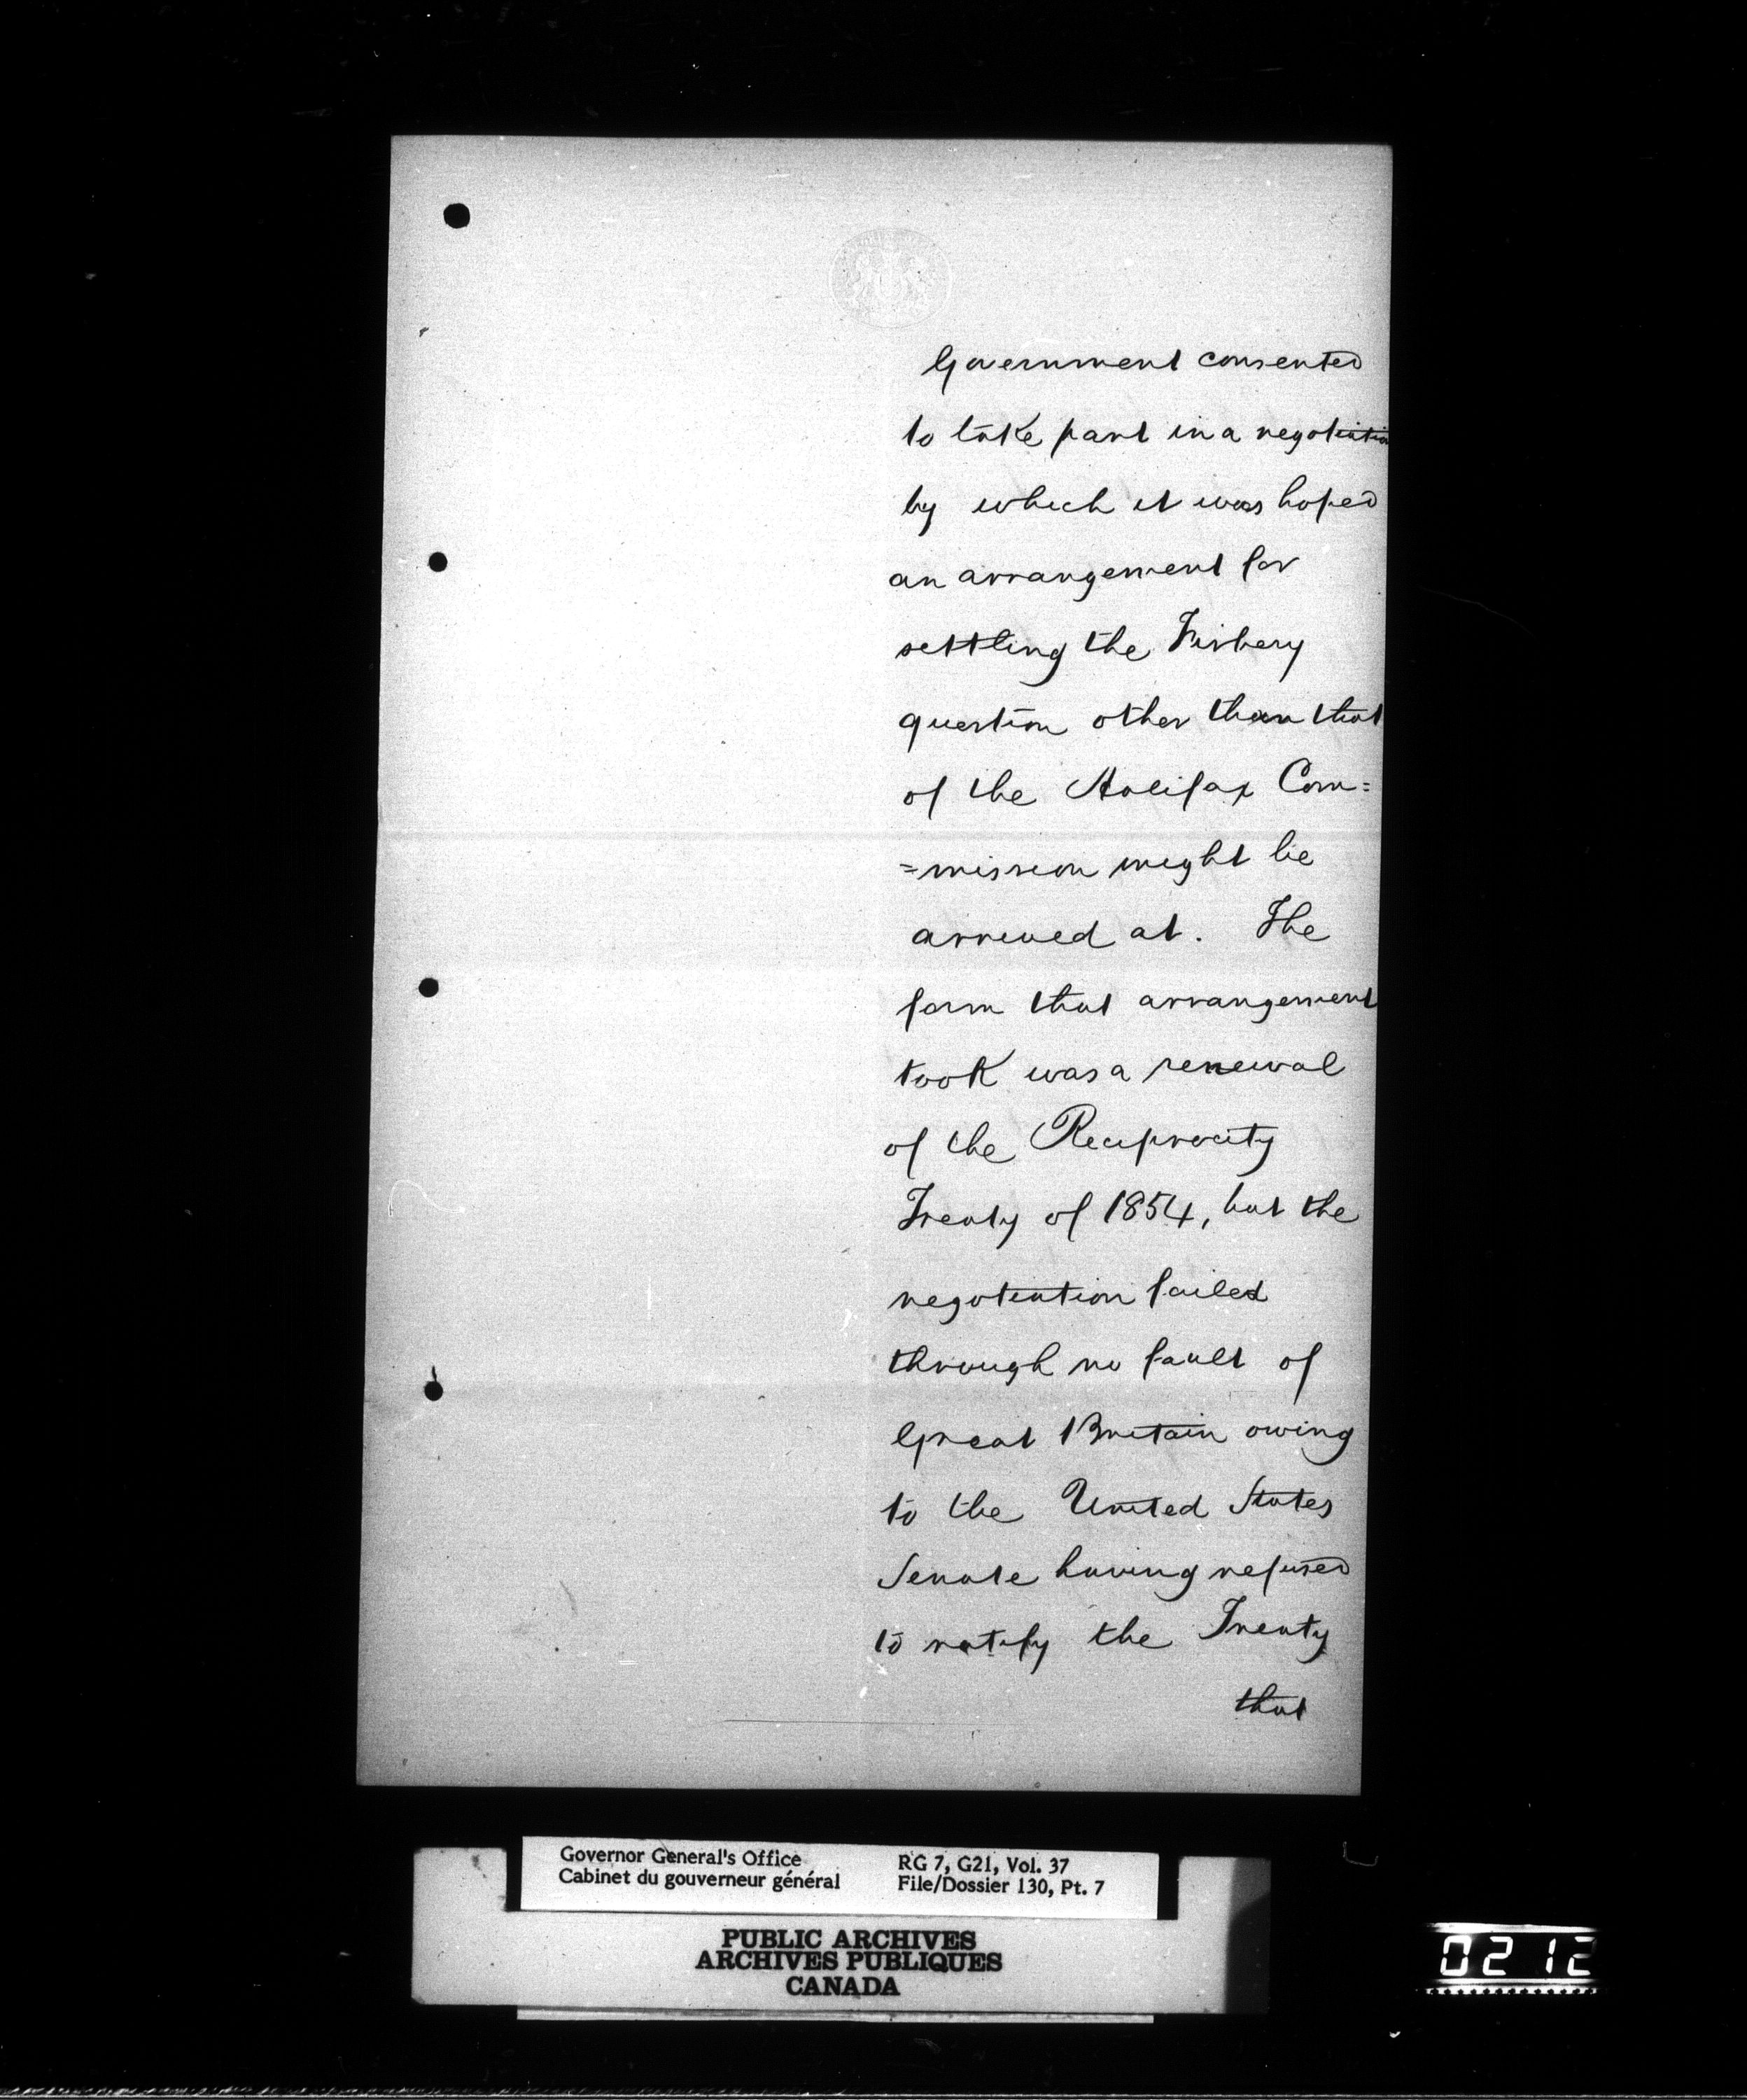 Government consented
to take part in a negotiation
by which it was hoped
an arrangement for
settling the Fishery
question other than that
of the Halifax Com=
=mission might be
arrived at. The
form that arrangement
took was a renewal
of the Reciprocity
Treaty of 1854, but the
negotiation failed
through no fault of
Great Britain owing
to the United States
Senate having refused
to ratify the Treaty
that
Governor General's Office
Cabinet du gouverneur général
RG 7, G21, Vol. 37
File/Dossier 130, Pt. 7
PUBLIC ARCHIVES
ARCHIVES PUBLIQUES
CANADA
0212